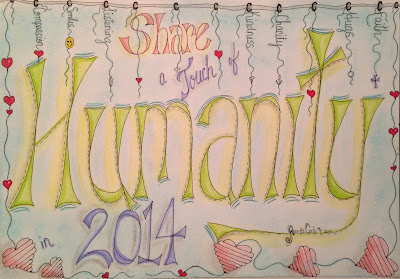 Compassion Smiles Listening Kindness Charity Hugs Faith
Share
a Touch of
Humanity
in 2014